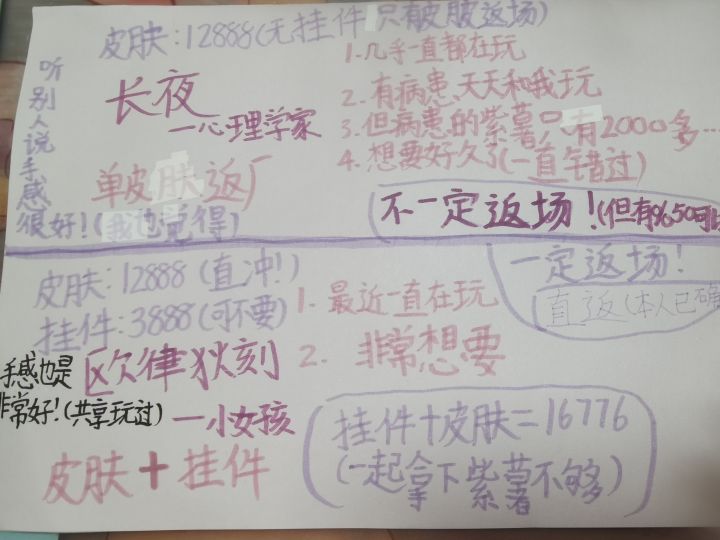 皮肤:12888(无挂件只有皮肤返场)
听别人说手感很好!(我也觉得)
长夜
一心理学家
单皮肤返厂
1.几乎一直都在玩
2.有病患天天和我玩
3.但病患的紫薯只有2000多…
4.想要好久了(一直午错过)
不一定返场!(但有%50可
皮肤:12888(直冲!)
挂件:3888(可不要)
手感也是
非常好!(共享玩过)
欧律狄刻
一小女孩
皮肤+挂件
1.最近一直在玩
2.非常想要
一定返场!
直返(本人已确
挂件+皮肤=16776
(一起拿下紫薯不够)